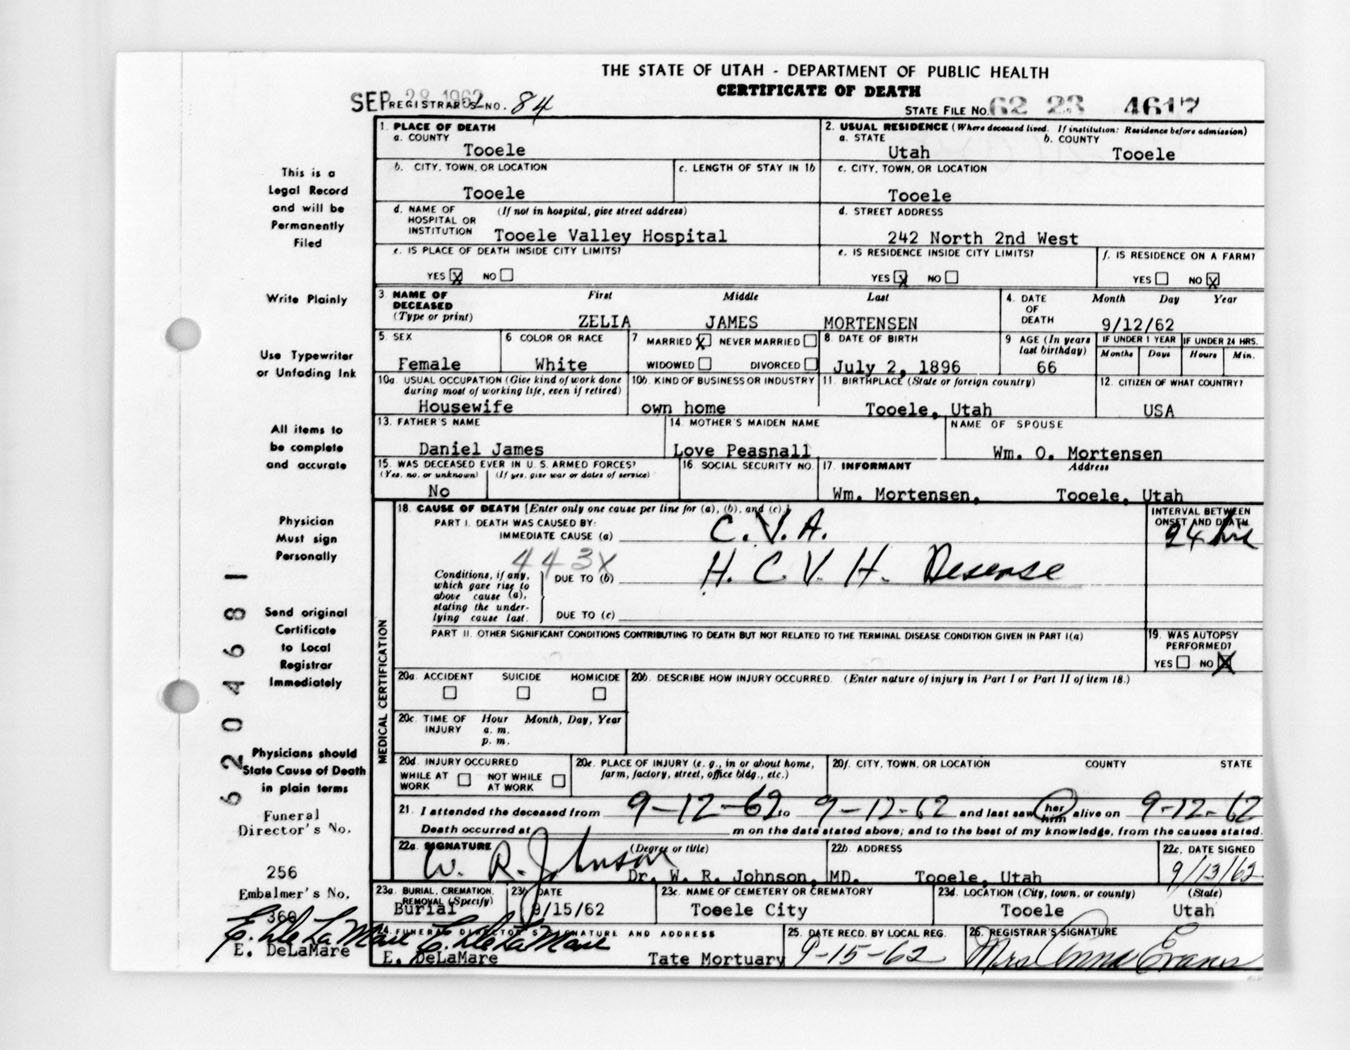 THE STATE OF UTAH - DEPARTMENT OF PUBLIC HEALTH
CERTIFICATE OF DEATH
SEP 28 1962
REGISTRAR'S NO. 84
STATE FILE NO. 62 23 4617
This is a
Legal Record
and will be
Permanently
Filed
Write Plainly
Use Typewriter
or Unfading Ink
All items to
be complete
and accurate
Physician
Must sign
Personally
Send original
Certificate
to Local
Registrar
Immediately
Physicians should
State Cause of Death
in plain terms
Funeral
Director's No.
256
Embalmer's No.
360
E. DeLaMare
E. DeLaMare
6204681
1. PLACE OF DEATH
a. COUNTY
Tooele
2. USUAL RESIDENCE (Where deceased lived. If institution: Residence before admission)
a. STATE b. COUNTY
Utah Tooele
b. CITY, TOWN, OR LOCATION c. LENGTH OF STAY IN 1b
Tooele
c. CITY, TOWN, OR LOCATION
Tooele
d. NAME OF (If not in hospital, give street address)
HOSPITAL OR
INSTITUTION Tooele Valley Hospital
d. STREET ADDRESS
242 North 2nd West
e. IS PLACE OF DEATH INSIDE CITY LIMITS?
YES X NO
e. IS RESIDENCE INSIDE CITY LIMITS?
YES X NO
f. IS RESIDENCE ON A FARM?
YES NO X
3. NAME OF DECEASED (Type or print) First Middle Last
ZELIA JAMES MORTENSEN
4. DATE OF DEATH Month Day Year
9/12/62
5. SEX
Female
6. COLOR OR RACE
White
7 MARRIED X NEVER MARRIED
WIDOWED DIVORCED
8. DATE OF BIRTH
July 2, 1896
9 AGE (In years last birthday)
66
IF UNDER 1 YEAR IF UNDER 24 HRS.
Months Days Hours Min.
10a. USUAL OCCUPATION (Give kind of work done
during most of working life, even if retired)
Housewife
10b. KIND OF BUSINESS OR INDUSTRY
own home
11. BIRTHPLACE (State or foreign country)
Tooele, Utah
12. CITIZEN OF WHAT COUNTRY?
USA
13. FATHER'S NAME
Daniel James
14. MOTHER'S MAIDEN NAME
Love Peasnall
NAME OF SPOUSE
Wm. O. Mortensen
15. WAS DECEASED EVER IN U. S. ARMED FORCES?
(Yes, no, or unknown) (If yes, give war or dates of service)
No
16. SOCIAL SECURITY NO.
17. INFORMANT Address
Wm. Mortensen, Tooele, Utah
MEDICAL CERTIFICATION
18. CAUSE OF DEATH [Enter only one cause per line for (a), (b), and (c).]
PART I. DEATH WAS CAUSED BY:
IMMEDIATE CAUSE (a) C.V.A.
INTERVAL BETWEEN
ONSET AND DEATH
24 hrs
443X
Conditions, if any,
which gave rise to
above cause (a),
stating the under-
lying cause last.
DUE TO (b) H. C. V. H. Desease
DUE TO (c)
PART II. OTHER SIGNIFICANT CONDITIONS CONTRIBUTING TO DEATH BUT NOT RELATED TO THE TERMINAL DISEASE CONDITION GIVEN IN PART I(a)
19. WAS AUTOPSY
PERFORMED?
YES NO X
20a. ACCIDENT SUICIDE HOMICIDE
20b. DESCRIBE HOW INJURY OCCURRED. (Enter nature of injury in Part I or Part II of item 18.)
20c. TIME OF INJURY Hour Month, Day, Year
a. m.
p. m.
20d. INJURY OCCURRED
WHILE AT WORK NOT WHILE AT WORK
20e. PLACE OF INJURY (e. g., in or about home,
farm, factory, street, office bldg., etc.)
20f. CITY, TOWN, OR LOCATION COUNTY STATE
21. I attended the deceased from 9-12-62 to 9-12-62 and last saw her him alive on 9-12-62
Death occurred at m on the date stated above; and to the best of my knowledge, from the causes stated.
22a. SIGNATURE (Degree or title)
W. R. Johnson Dr. W. R. Johnson, MD.
22b. ADDRESS
Tooele, Utah
22c. DATE SIGNED
9/13/62
23a. BURIAL, CREMATION,
REMOVAL (Specify)
Burial
23b. DATE
9/15/62
23c. NAME OF CEMETERY OR CREMATORY
Tooele City
23d. LOCATION (City, town, or county) (State)
Tooele Utah
24. FUNERAL DIRECTOR'S SIGNATURE AND ADDRESS
E. DeLaMare
E. DeLaMare Tate Mortuary
25. DATE RECD. BY LOCAL REG.
9-15-62
26. REGISTRAR'S SIGNATURE
Mrs Anna Evans